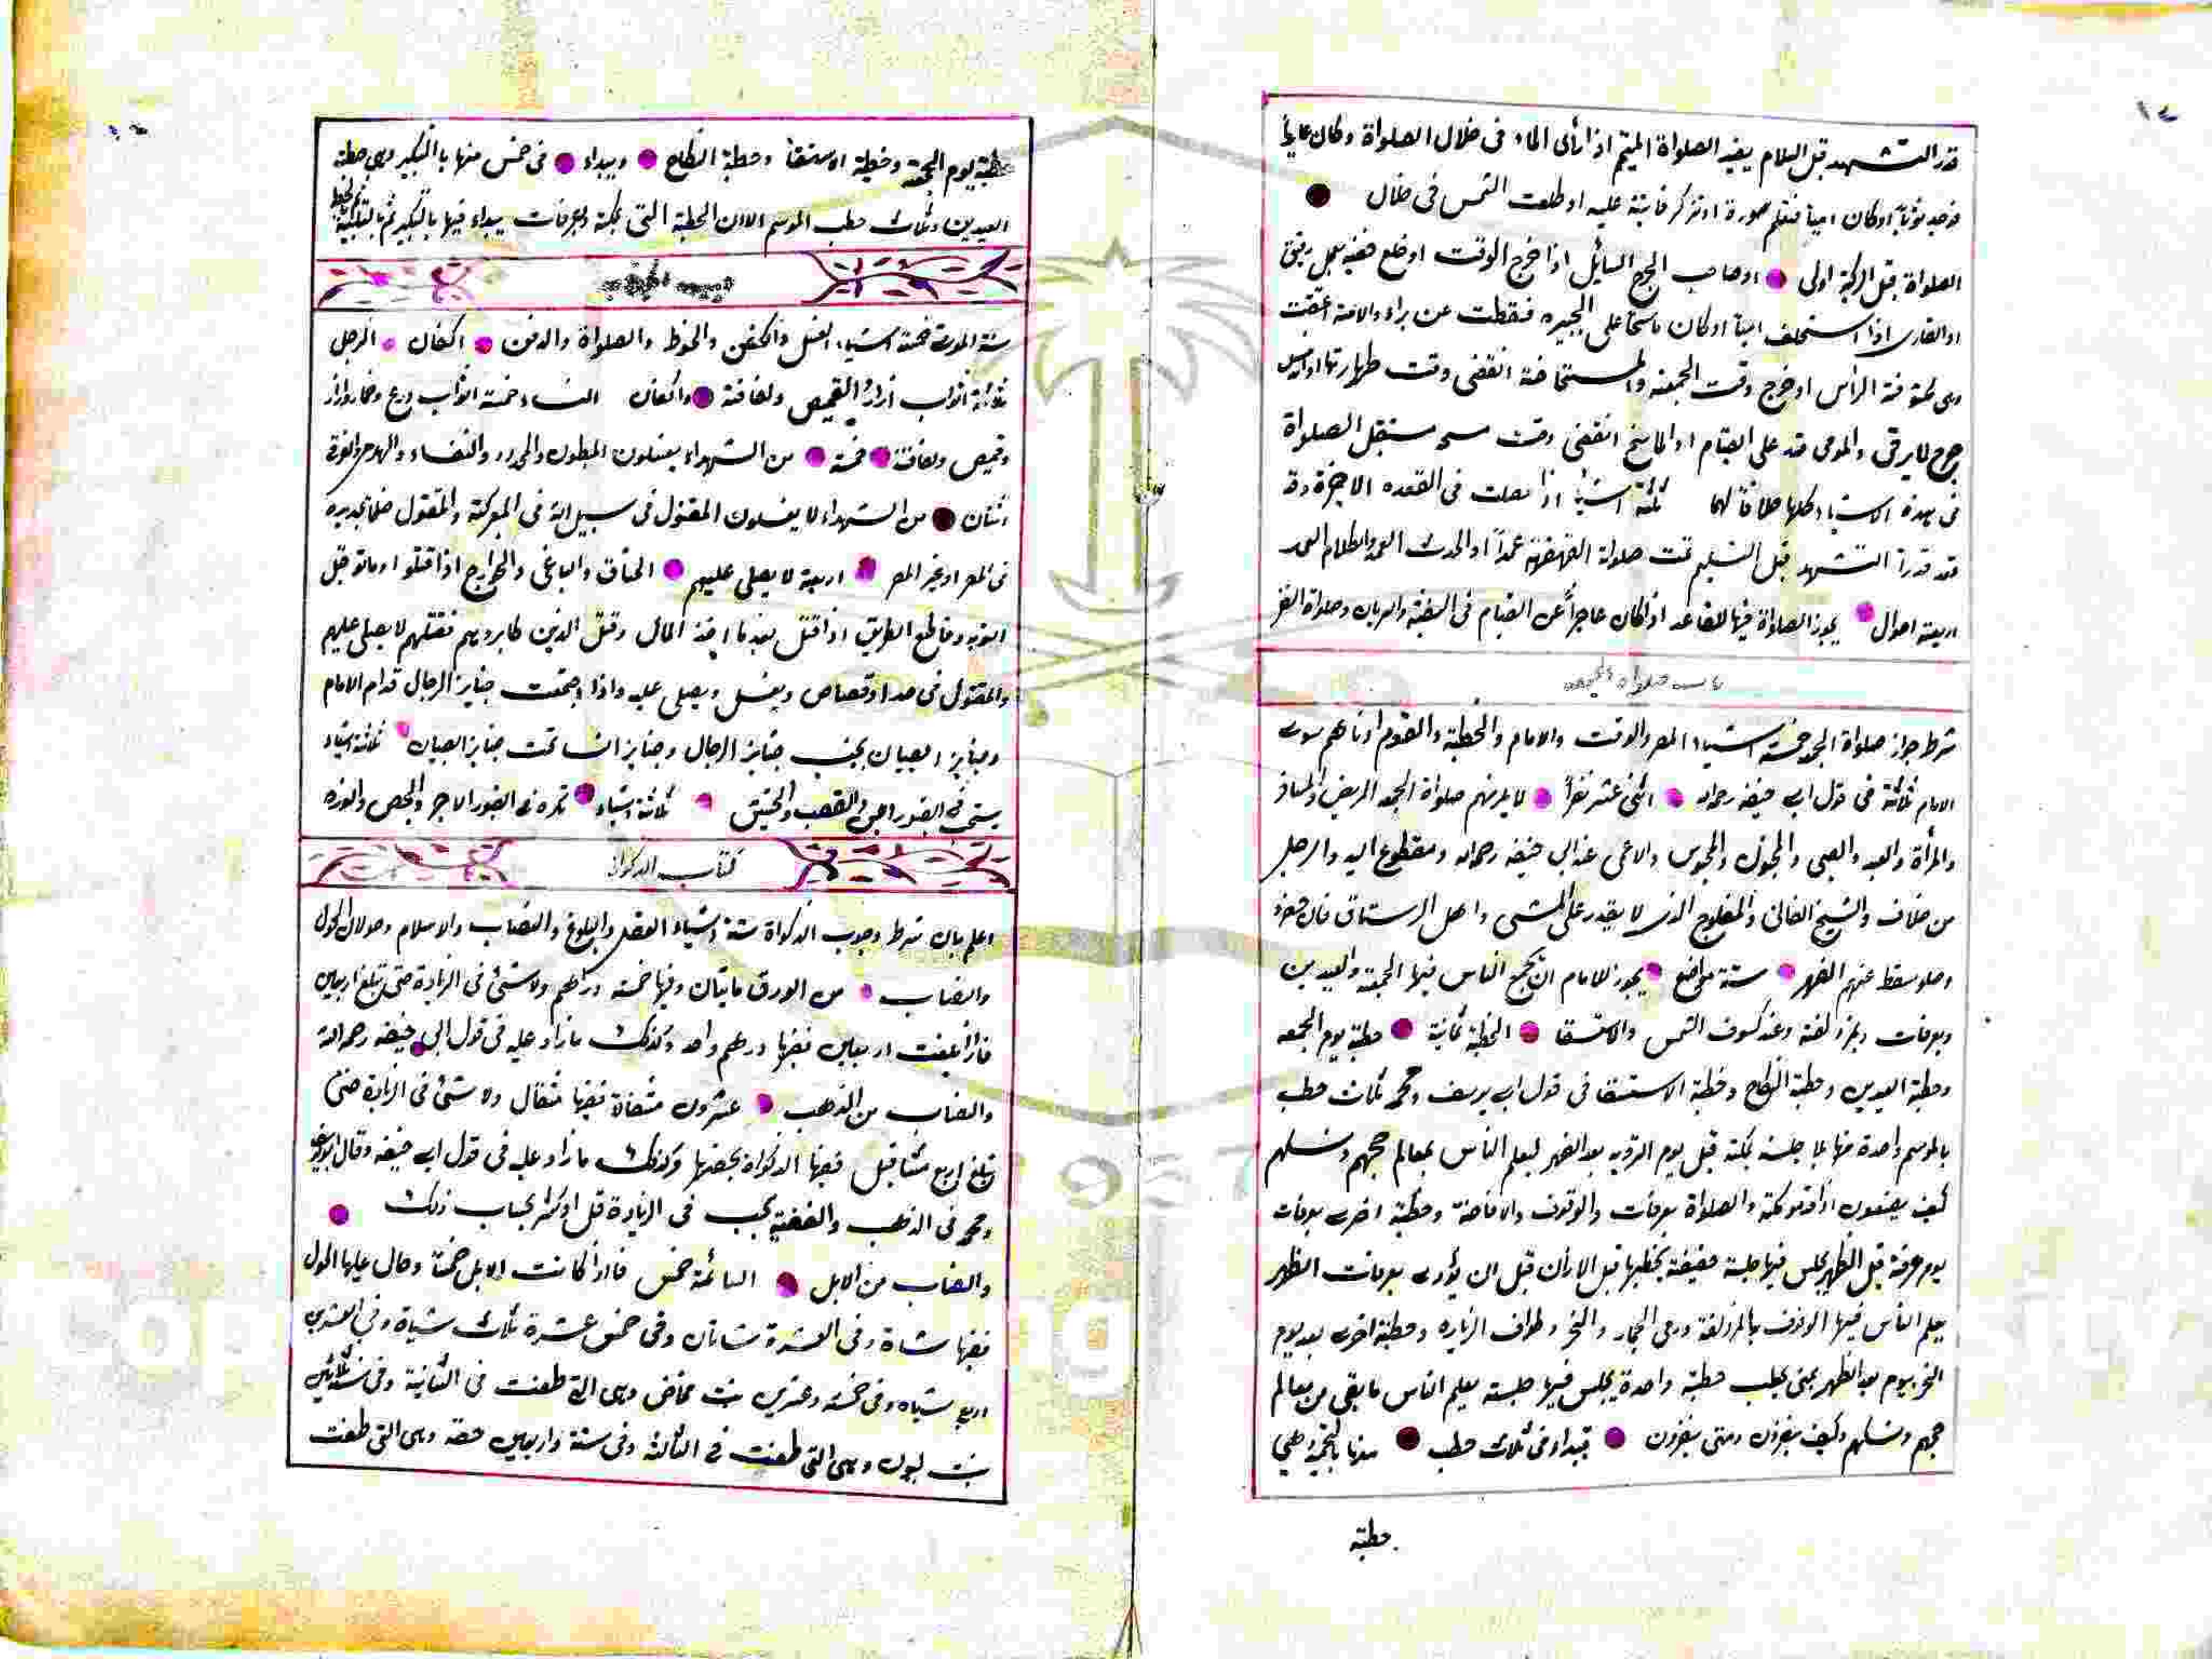 قدر التشهد قبل السلام يفيد الصلواة المتيم اذا رأى الماء فى خلال الصلواة وكان عاريا
فوجد ثوبا اوكان اميا فتعلم سورة او تذكر فايتة عليه او طلعت الشمس فى خلال
الصلواة قبل الركبة اولى اوصاحب الجرح السائل اذا خرج الوقت اوخلع خفيه بعمل رفيق
او القارى اذا استخلف اميا اوكان ماسحا على الجبيره فسقطت عن براء والامة اعتقت
وهى مكشوفة الرأس او خرج وقت الجمعة والمستحاضة انقضى وقت طهارتها
جرح لا يرقى والمومى قدر على القيام او الماسح انقضى وقت مسحه ستقبل الصلواة
فى هذه الاشياء كلها خلافا لهما ثلثة اشيأ اذا حصلت فى القعده الاخيرة وقد
قعد قدرا التشهد قبل التسليم تمت صلواة القهقهة عمدا او الحدث العمد والكلام العمد
اربعة احوال يجوز الصلواة فيها للقاعد اذا كان عاجزا عن القيام فى السفينة والعريان وصلواة النفل
باب صلواة الجمعه
شرط جواز صلواة الجمعه خمسة اشياء المصر والوقت والامام والخطبة والقوم ادناهم سوى
الامام ثلاثة فى قول ابى حنيفه رحمه الله اثنى عشر نفرا لا يلزمهم صلواة الجمعه المريض والمسافر
والمرأة والعبد والصبى والمجنون والمحبوس والاعمى عند ابى حنيفه رحمه الله ومقطوع اليد والرجل
من خلاف والشيخ الفانى والمفلوج الذى لا يقدر على المشى واهل الرستاق فان حضروا
وصلو سقط عنهم الظهر ستة مواضع يجوز للامام ان يجمع الناس فيها الجمعة والعيدين
وبعرفات وبمزدلفة وعند كسوف الشمس والاستسقا الخطبة ثمانية خطبة يوم الجمعه
وخطبة العيدين وخطبة النكاح وخطبة الاستسقا فى قول ابى يوسف ومحمد ثلاث خطب
بالموسم واحدة منها بلا جلسة بمكة قبل يوم التروية بعد الظهر ليعلم الناس بمعالم حجهم ونسكهم
كيف يصنعون اذا قدمو مكة والصلواة بعرفات والوقوف والافاضة وخطبة اخرى بعرفات
يوم عرفة قبل الظهر يجلس فيها جلسة خفيفة يخطبها قبل الاذان قبل ان يؤدى بعرفات الظهر
يعلم الناس فيها الوقوف بالمزدلفة ورمى الجمار والنحر وطواف الزياره وخطبة اخرى بعد يوم
النحر بيوم بعد الظهر بمنى يخطب خطبة واحدة يجلس فيها جلسة يعلم الناس ما بقى من معالم
حجهم ونسكهم وكيف ينفرون ومتى ينفرون يبتداء فى ثلاث خطب منها بالتحميد وهى
خطبة
خطبة يوم الجمعة وخطبة الاستسقا وخطبة النكاح ويبداء فى خمس منها بالتكبير وهى خطبة
العيدين وثلاث خطب الموسم الا ان الخطبة التى بمكة وبعرفات يبداء فيها بالتكبير ثم بالتلبية ثم بالخطبة
ستة الموت خمسة اشياء الغسل والكفن والحنوط والصلواة والدفن اكفان الرجل
ثلاثة اثواب ازار والقميص ولفافة واكفان النساء خمسة اثواب درع وخمار وازار
وقميص ولفافة خمسة من الشهداء يغسلون المبطون والمجدور والنفساء والهدمى والغرقى
اثنان من الشهداء لا يغسلون المقتول فى سبيل الله فى المعركة والمقتول ظلما بحديدة
فى المصر او غير المصر اربعة لا يصلى عليهم الخناق والباغى والخوارج اذا قتلوا او ماتو قبل
التوبه وقاطع الطريق اذا قتل بعد ما اخذ المال وقتل الذين كابروهم فقتلهم لا يصلى عليهم
والمقتول فى حد او قصاص ويغسل ويصلى عليه واذا اجتمعت جنايز الرجال قدام الامام
وجنايز الصبيان بجنب جنايز الرجال وجنايز النسا تحت جنايز الصبيان ثلاثة اشياء
يستحب فى القبور اللبن والقصب والحشيش ثلاثة اشياء تكره فى القبور الاجر والجص والنوره
كتاب الزكواة
اعلم بان شرط وجوب الزكواة ستة اشياء العقل والبلوغ والنصاب والاسلام وحولان الحول
والنصاب من الورق مايتان وفيها خمسة دراهم ولا شئ فى الزيادة حتى تبلغ اربعين
فاذا بلغت اربعين ففيها درهم واحد وكذلك مازاد عليه فى قول ابى حنيفه رحمه الله
والنصاب من الذهب عشرون مثقالا ففيها مثقال ولا شئ فى الزيادة حتى
تبلغ اربع مثاقيل ففيها الزكواة بحصتها وكذلك مازاد عليه فى قول ابى حنيفه وقال ابو يوسف
ومحمد فى الذهب والفضة يجب فى الزيادة قل او كثر بحساب ذلك
والنصاب من الابل السائمة خمس فاذا كانت الابل خمسا وحال عليها الحول
ففيها شاة وفى العشرة شاتان وفى خمس عشرة ثلاث شياة وفى العشرين
اربع شياه وفى خمسة وعشرين بنت مخاض وهى التى طعنت فى الثانية وفى ستة وثلاثين
بنت لبون وهى التى طعنت فى الثالثة وفى ستة واربعين حقة وهى التى طعنت